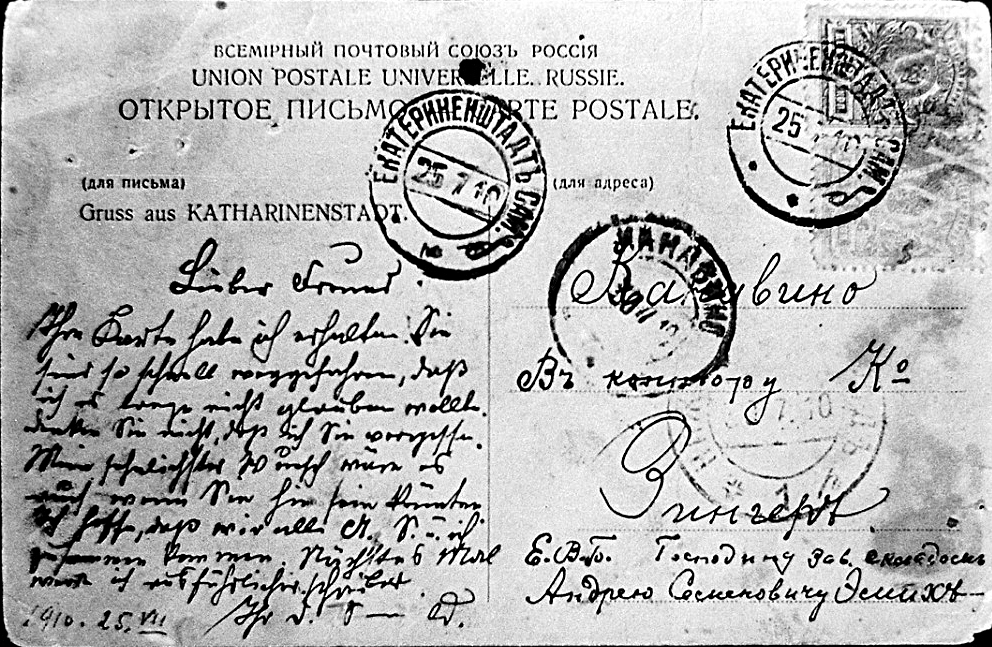 ВСЕМІРНЫЙ ПОЧТОВЫЙ СОЮЗЪ РОССІЯ
UNION POSTALE UNIVERSELLE. RUSSIE.
ОТКРЫТОЕ ПИСЬМО CARTE POSTALE.
(для письма)
(для адреса)
Gruss aus KATHARINENSTADT.
ЕКАТЕРИНЕНШТАДТЪ САМ.
25 7 10
ЕКАТЕРИНЕНШТАДТЪ САМ.
25 10
КАНАВИНО
Lieber Freund.
Ihre Karte habe ich erhalten. Sie
sind so schnell weggefahren, daß
ich es nicht glauben wollte.
denken Sie nicht, daß ich Sie vergesse.
Mein sehnlichster Wunsch wäre es
auch wenn Sie hier sein könnten.
Ich hoffe, daß wir alle A. S. u. ich
zusammen kommen. Nächstes Mal
werde ich ausführlicher schreiben.
Ihr d. S— A.
1910. 25. VII
Канавино
Въ контору Ко
Зингеръ
Е. В. Б. Господину зав. складомъ
Андрею Семеновичу Эсмихъ